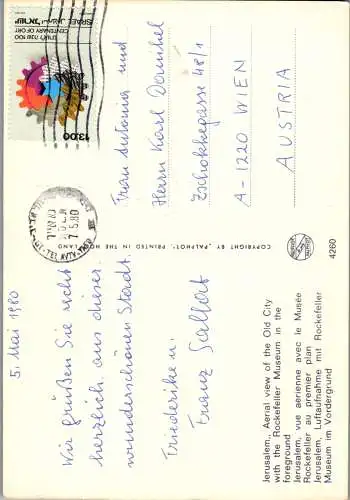 5. Mai 1980
Wir grüßen Sie recht
herzlich aus dieser
wunderschönen Stadt.
Friederike u.
Franz
Frau Antonia und
Herrn Karl
Zschokkegasse 48/1
A-1220 WIEN
AUSTRIA
ISRAEL اسرائيل ישראל
CENTENARY OF ORT
100 שנה לאורט
13.00
TEL AVIV-YAFO
7.5.80
COPYRIGHT BY "PALPHOT", PRINTED IN THE HOLY LAND
4260
Jerusalem, Aerial view of the Old City
with the Rockefeller Museum in the
foreground
Jerusalem, vue aerienne avec le Musée
Rockefeller au premier plan
Jerusalem, Luftaufnahme mit Rockefeller
Museum im Vordergrund